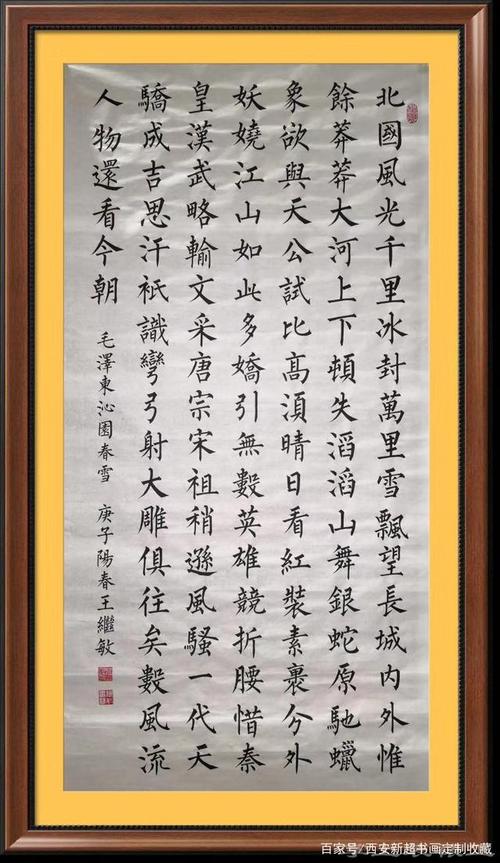 北國風光千里冰封萬里雪飄望長城内外惟
餘莽莽大河上下頓失滔滔山舞銀蛇原馳蠟
象欲與天公試比髙湏晴日看紅裝素裹分外
妖嬈江山如此多嬌引無數英雄競折腰惜秦
皇漢武略輸文采唐宗宋祖稍遜風騷一代天
驕成吉思汗衹識彎弓射大雕俱往矣數風流
人物還看今朝 毛澤東沁園春雪 庚子陽春王繼敏
百家号/西安新超书画定制收藏